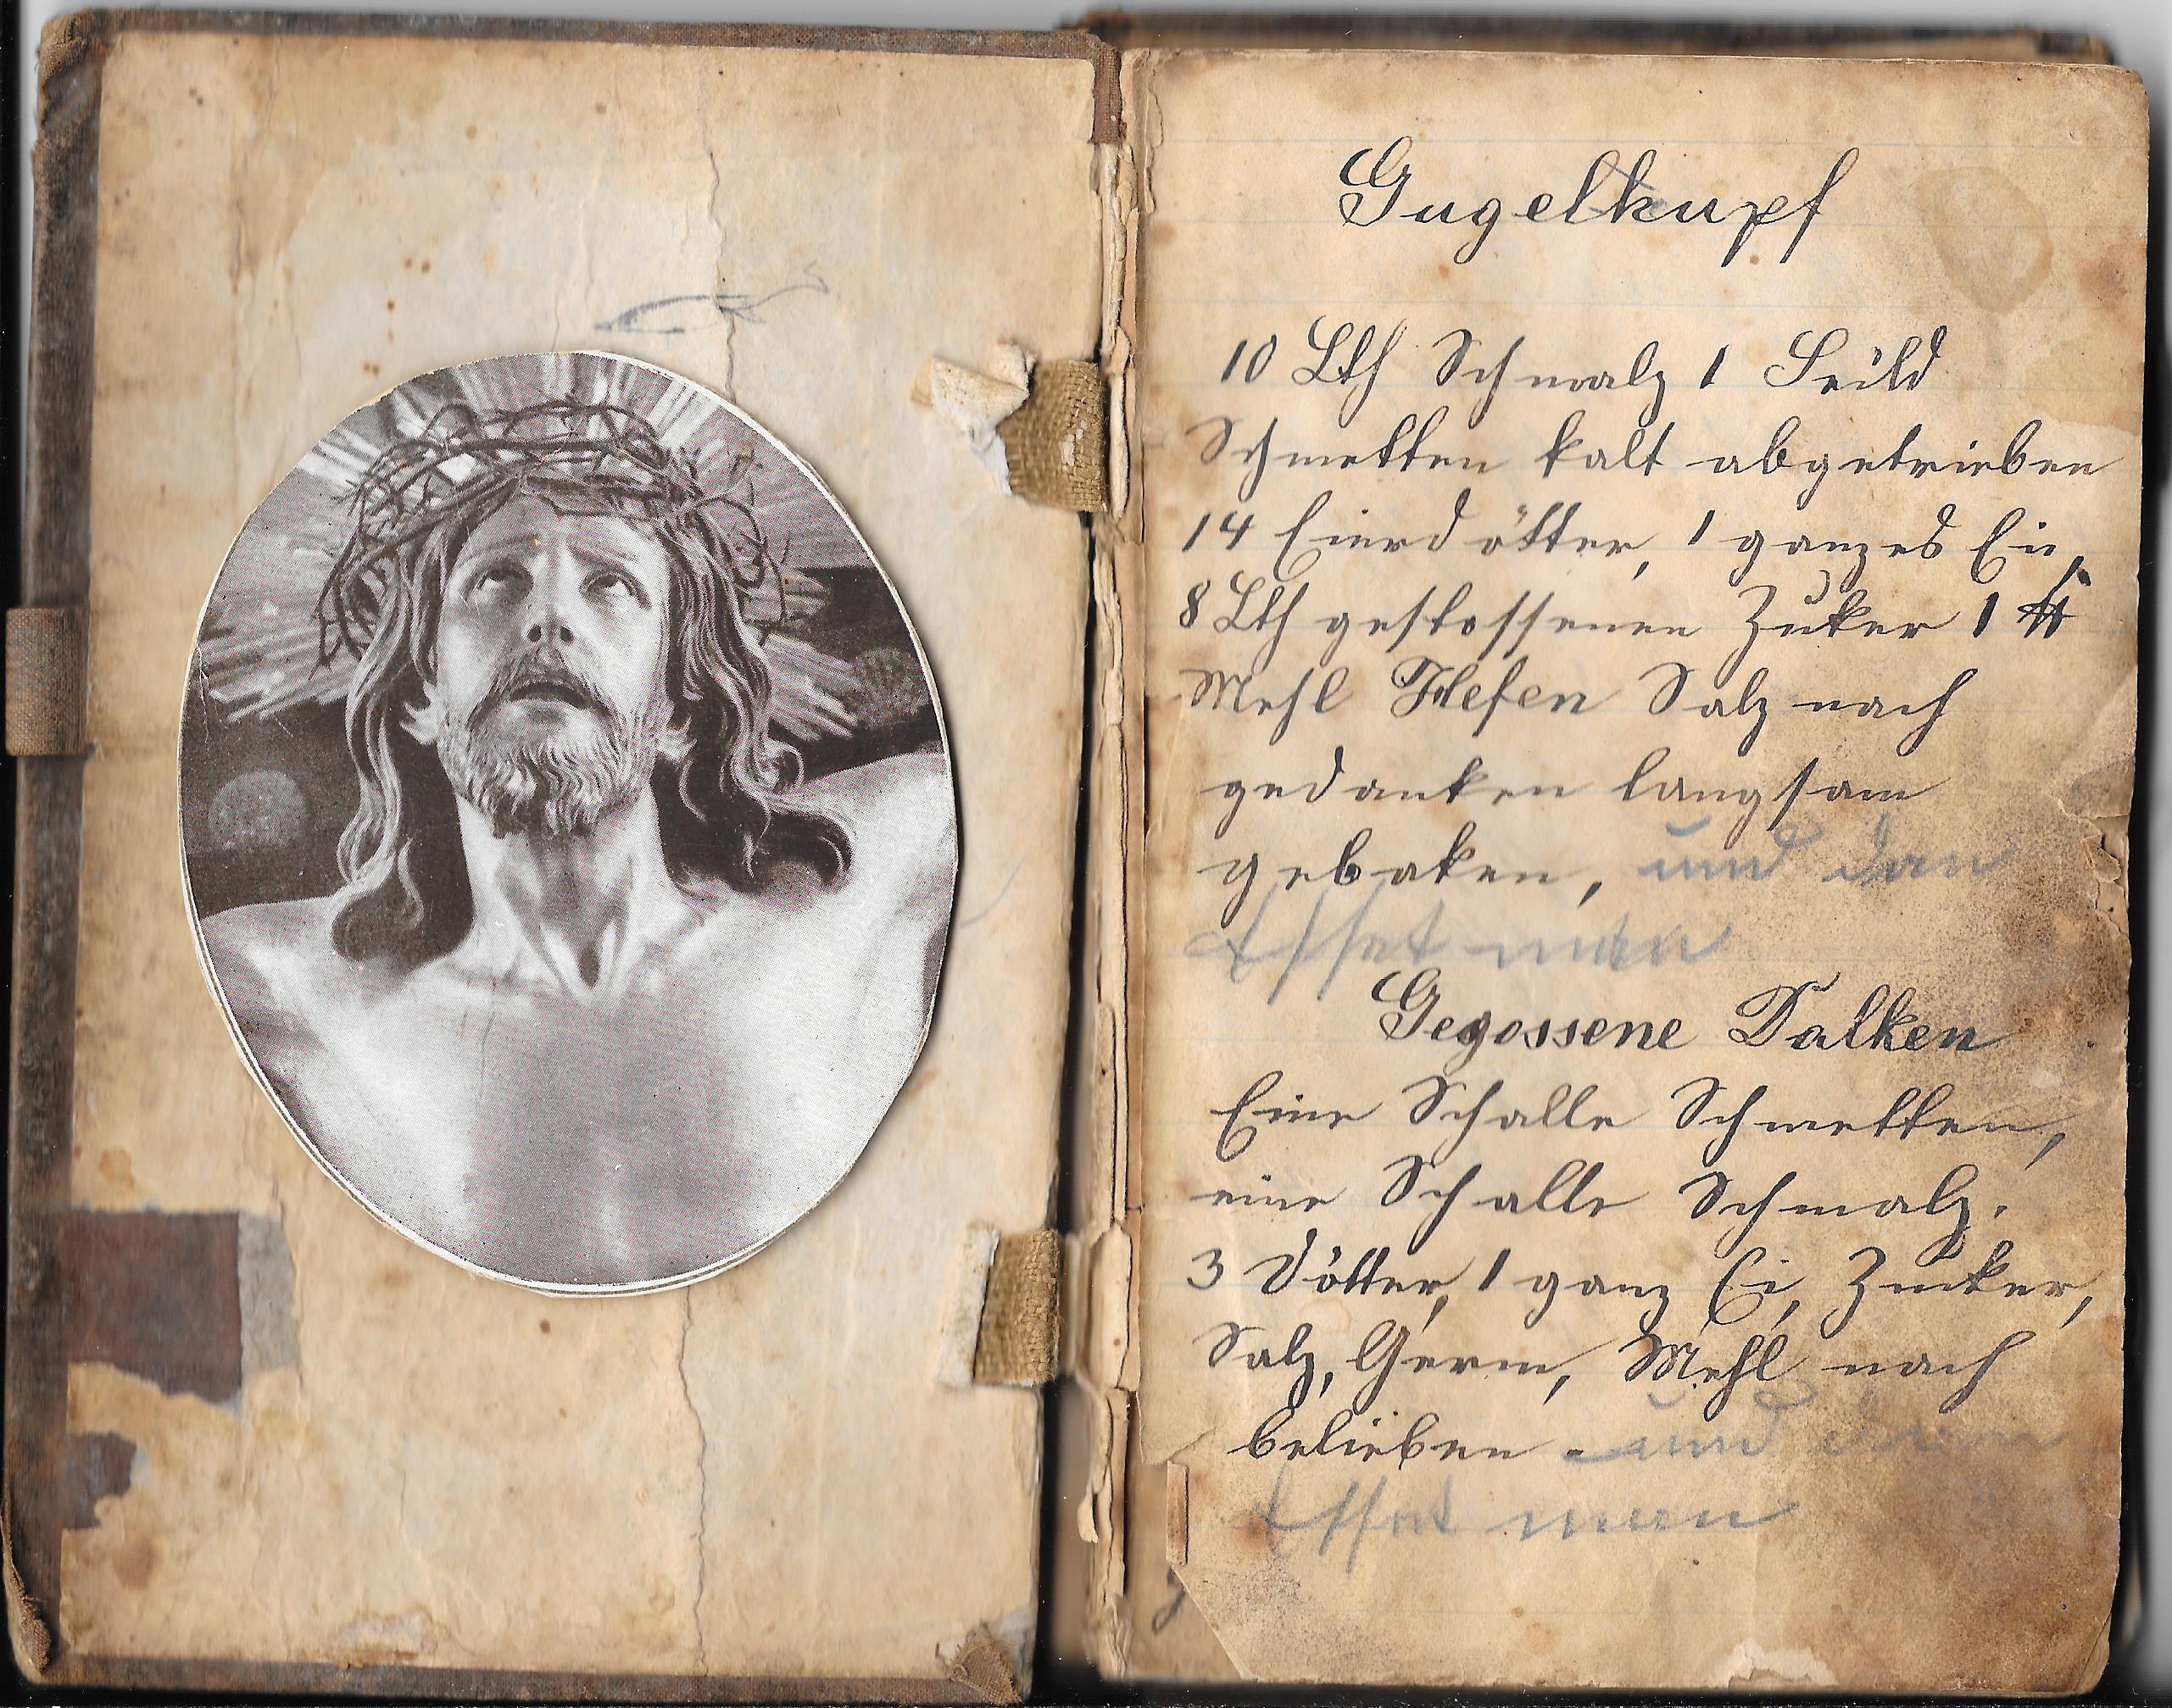 Gugelkupf
10 Lth Schmalz 1 Seild
Schmetten kalt abgetrieben
14 Eierdötter, 1 ganzes Ei,
8 Lth gestossenen Zuker 1 ℔
Mehl Hefen Salz nach
gedanken langsam
gebaken, und dan
esset man
Gegossene Dalken
Eine Schalle Schmetten,
eine Schalle Schmalz.
3 Dötter, 1 ganz Ei, Zucker,
Salz, Germ, Mehl nach
belieben. und dan
esset man